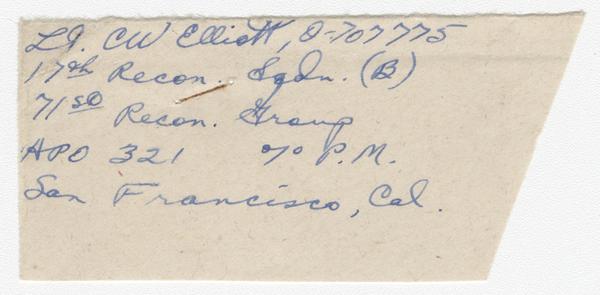 Lt. CW Elliott, O-707775
17th Recon. Sqdn. (B)
71SD Recon. Group
APO 321 % P.M.
San Francisco, Cal.